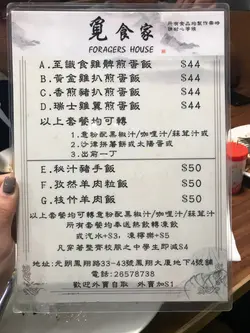 覓食家
所有食品均製作需時
請耐心等候
FORAGERS HOUSE
A.至識食雞髀煎蛋飯 $44
B.黃金雞扒煎蛋飯 $44
C.香煎豬扒煎蛋飯 $44
D.瑞士雞翼煎蛋飯 $44
以上套餐均可轉
1.意粉配黑椒汁/咖喱汁/蘑茸汁或
2.沙津拼薯餅或太陽蛋或
3.出前一丁
E.秘汁豬手飯 $50
F.孜然羊肉粒飯 $50
G.枝竹羊肉飯 $50
以上套餐均可轉意粉配黑椒汁/咖喱汁/蘑茸汁
所有套餐均奉送熱飲轉凍飲
或汽水+$3，凍檸樂+$5
凡穿著整齊校服之中學生即減$4
地址:元朗鳳翔路33-43號鳳翔大廈地下4號舖
電話:26578738
歡迎外賣自取 外賣加$1